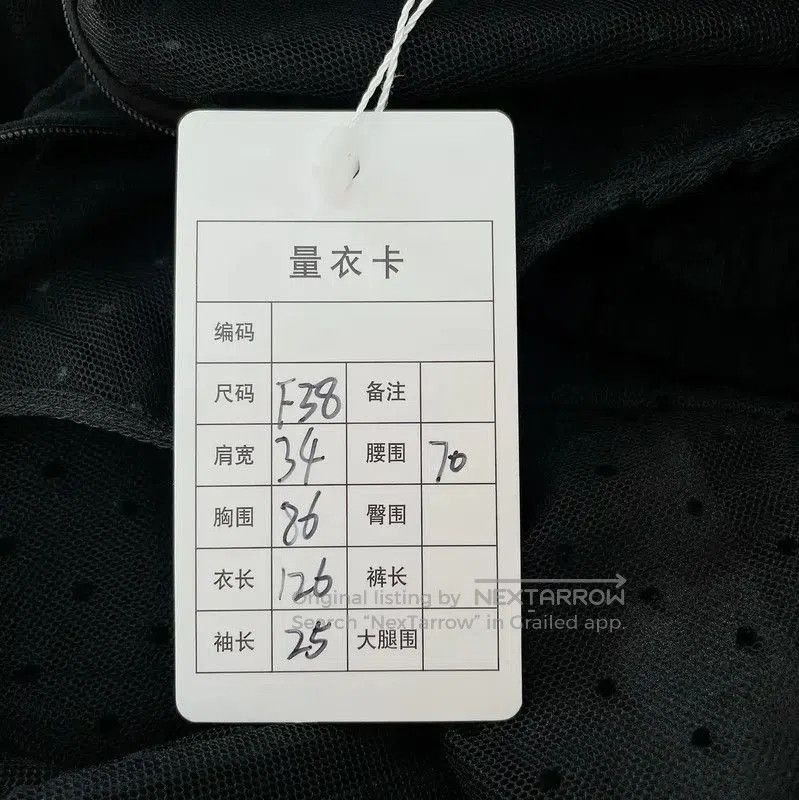 量衣卡
编码
尺码 F38 备注
肩宽 34 腰围 70
胸围 86 臀围
衣长 126 裤长
袖长 25 大腿围
Original listing by NEXTARROW
Search “NexTarrow” in Grailed app.